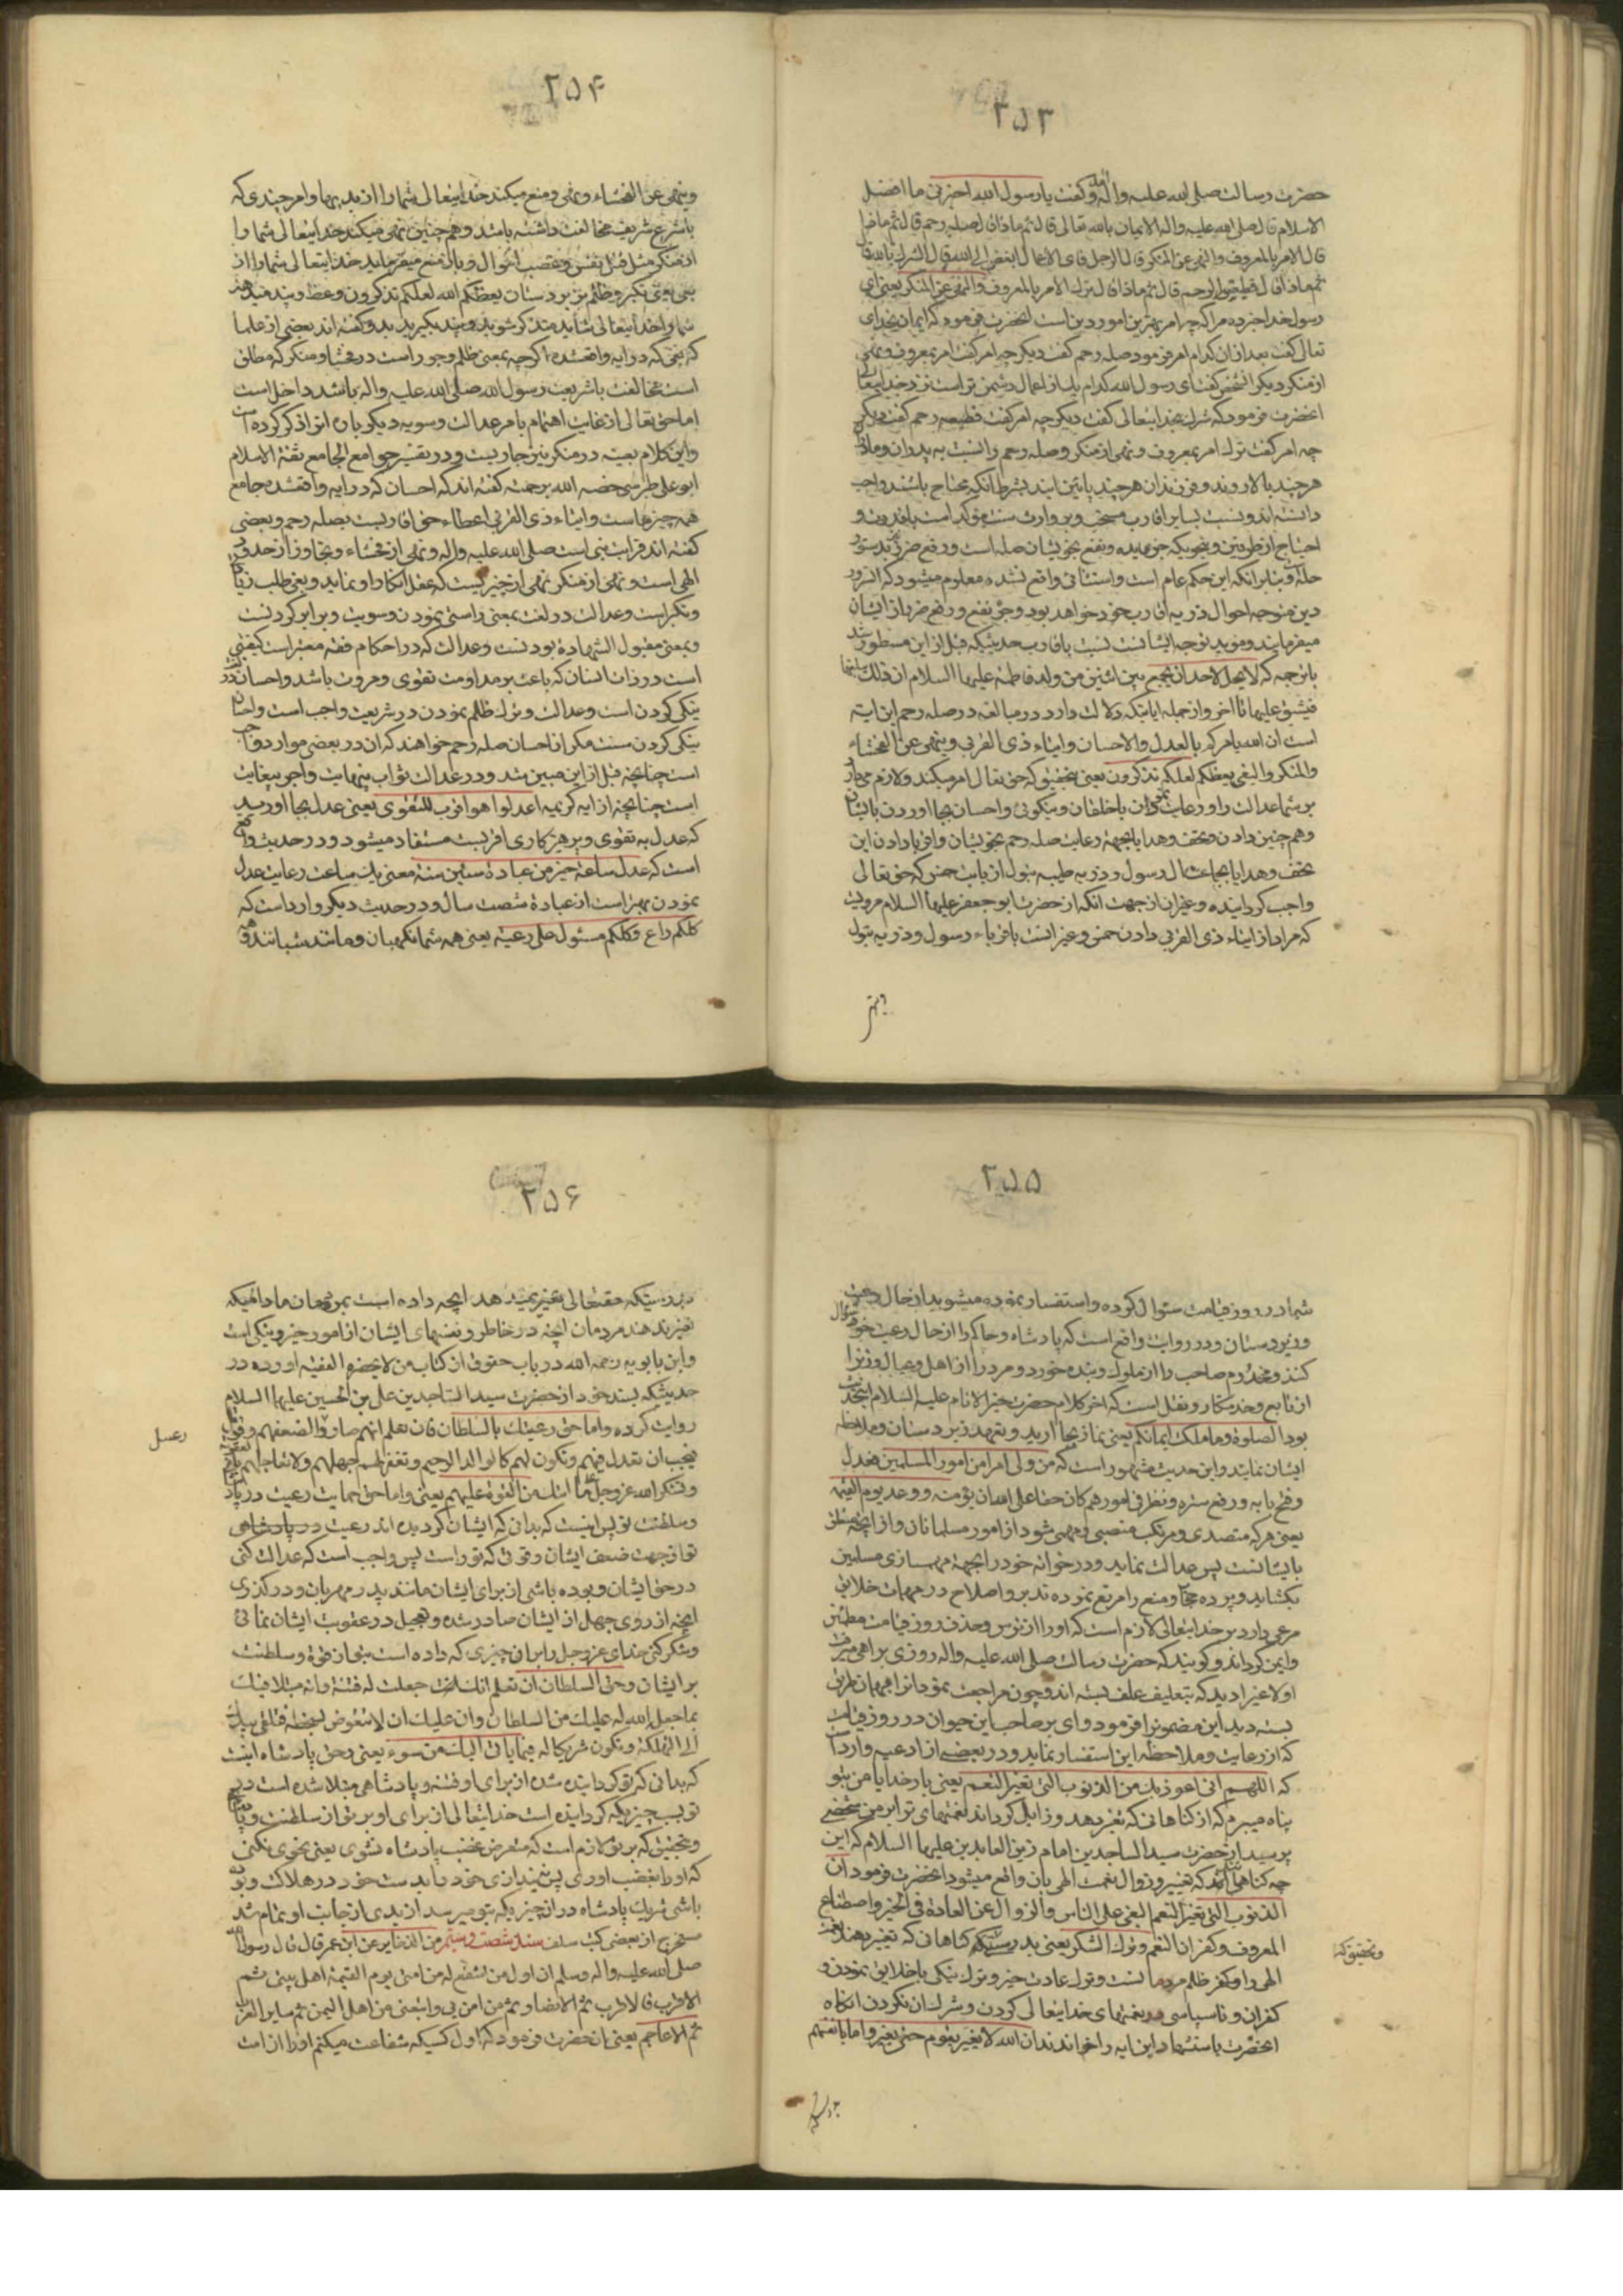 ۲۵۳
حضرت رسالت صلی الله علیه واله آمد و کفت یا رسول الله اخبرنی ما افضل
الاسلام قال صلی الله علیه واله الایمان بالله تعالی قال ثم ماذا قال صله رحم قال ثم ماذا
قال الامر بالمعروف والنهی عن المنکر قال الرجل فای الاعمال ابغض الی الله قال الشرک بالله قال
ثم ماذا قال قطیعة الرحم قال ثم ماذا قال ترک الامر بالمعروف والنهی عن المنکر یعنی ای
رسول خدا خبر ده مرا که چه امر بهترین امور دین است انحضرت فرمود که ایمان بخدای
تعالی کفت بعد ازان کدام امر فرمود صله رحم کفت دیکر چه امر کفت امر بمعروف و نهی
از منکر دیکر انشخص کفت ای رسول الله کدام یک از اعمال دشمن تر است نزد خدایتعالی
انحضرت فرمود که شرک بخدایتعالی کفت دیکر چه امر کفت قطیعه رحم کفت دیکر
چه امر کفت ترک امر بمعروف و نهی از منکر و صله رحم را نسبت به پدران و مادران
هر چند بالا روند و فرزندان هر چند پائین ایند بشرط انکه محتاج باشند واجب
دانسته اند و نسبت بسایر اقارب مستحب و بر وارث سنت مؤکد است با قدرت و
احتیاج از طرفین و بخوبیکه جزعیده و نفع بخویشان صله است و رفع ضرر نیز بدستور
صله و بنابر انکه این حکم عام است و استثنائی واقع نشده معلوم میشود که السرور
دین متوجه احوال ذریه اقارب خود خواهد بود و جر نفع و رفع ضرر از ایشان
میفرمایند و مؤید توجه ایشانست نسبت باقارب حدیثیکه قبل از این مسطور شد
باترجمه که لا یحل لاحد ان یجمع بین اثنتین من ولد فاطمة علیها السلام ان ذلک یبلغها
فیشق علیها تا اخر و از جمله ایاتیکه دلالت دارد در مبالغه در صله رحم این ایه
است ان الله یامرکم بالعدل والاحسان وایتاء ذی القربی وینهی عن الفحشاء
والمنکر والبغی یعظکم لعلکم تذکرون یعنی بتحقیق که حق تعالی امر میکند و لازم میدارد
بر شما عدالت را و رعایت نمودن با خلقان و نیکوئی و احسان بجا اوردن بایشان
و هم چنین دادن و تحف و هدایا بجهة رعایت صله رحم بخویشان و اقربا و دادن این
تحف و هدایا بجماعت ال رسول و ذریه طیبه بتول از بابت خمس که حق تعالی
واجب کردانیده و غیر ان از جهت انکه از حضرت ابو جعفر علیها السلام مرویست
که مراد از ایتاء ذی القربی دادن خمس و غیر انست باقرباء رسول و ذریه بتول
۲۵۴
وینهی عن الفحشاء و نهی و منع میکند خدایتعالی شما را از بدیها و امر چیزی که
با شرع شریف مخالفت داشته باشد و هم چنین نهی میکند خدایتعالی شما را
از منکر مثل قتل نفس و غصب اموال و بال منع میفرماید خدایتعالی شما را از
بغی یعنی تکبر و ظلم بر زیر دستان یعظکم الله لعلکم تذکرون وعظ و پند میدهد
شما را خدایتعالی شاید متذکر شوید و پند بکیرید و کفته اند بعضی از علما
که بغی که در ایه واقعشده اکرچه بمعنی ظلم و جور است در فحشا و منکر که مطلق
است مخالفت با شریعت رسول الله صلی الله علیه واله باشد داخل است
اما حق تعالی از غایت اهتمام بامر عدالت و سویه دیکر باره انرا ذکر کرده است
و این کلام بعینه در منکر نیز جاریست و در تفسیر جوامع الجامع ثقة الاسلام
ابو علی طبرسی خصه الله برحمته کفته اند که احسان که در ایه واقعشده جامع
همه چیزهاست و ایتاء ذی القربی اعطاء حق اقاربست بصله رحم و بعضی
کفته اند قرابت نبی است صلی الله علیه واله و نهی از فحشاء و تجاوز از حدود
الهی است و نهی از منکر نهی از چیزیست که عقل انکار او نماید و بغی طلب زیادتی
و تکبر است و عدالت در لغت بمعنی راستی نمودن و سویت و برابر کردنست
و بمعنی مقبول الشهادة بودنست و عدالت که در احکام فقه معتبر است کیفیتی
است در ذات انسان که باعث بر مداومت تقوی و مروت باشد و احسان
نیکی کردن است و عدالت و ترک ظلم نمودن در شریعت واجب است و احسان
نیکی کردن سنت مکر از احسان صله رحم خواهند که ان در بعضی موارد واجب
است چنانچه قبل از این مبین شد و در عدالت ثواب بینهایت و اجر بیغایت
است چنانچه از ایه کریمه اعدلوا هو اقرب للتقوی یعنی عدل بجا اورید
که عدل به تقوی و پرهیزکاری اقربست مستفاد میشود و در حدیث واقع
است که عدل ساعة خیر من عبادة ستین سنة یعنی یک ساعت رعایت عدل
نمودن بهتر است از عبادة شصت سال و در حدیث دیکر وارد است که
کلکم راع و کلکم مسئول علی رعیته یعنی همه شما نکهبان و مانند شبانند و همه
۲۵۵
شما در روز قیامت سئوال کرده و استفسار نموده میشوید از حال رعیت
و زیردستان و در روایت واقع است که پادشاه و حاکم را از حال رعیت خود سؤال
کنند و مخدوم صاحب را از مملوک و بنده خود و مرد را از اهل و عیال و زن را
از تابع و خدمتکار و نقل است که اخر کلام حضرت خیر الانام علیه السلام اینحدیث
بود الصلوة وما ملکت ایمانکم یعنی نماز بجا ارید و تعهد زیردستان و ملاحظه
ایشان نمایند و این حدیث مشهور است که من ولی امرا من امور المسلمین فعدل
وفتح بابه ورفع ستره ونظر فی امورهم کان حقا علی الله ان یؤمنه روعه یوم القیمة
یعنی هر که متصدی و مرتکب منصبی و مهمی شود از امور مسلمانان و از انچه متعلق
بایشانست پس عدالت نماید و در خوانه خود را بجهة مهمسازی مسلمین
بکشاید و پرده حجاب و منع را مرتفع نموده تدبیر و اصلاح در مهمات خلایق
مرعی دارد بر خدایتعالی لازم است که او را از ترس و حذر روز قیامت مطمئن
و ایمن کرداند و کویند که حضرت رسالت صلی الله علیه واله روزی براهی میرفت
اولاغی را دید که بتعلیف علف بسته اند و چون مراجعت نمود انرا بهمان طریق
بسته دید این مضمون را فرمود وای بر صاحب این حیوان در روز قیامت
که از رعایت و ملاحظه این استفسار نماید و در بعضی از ادعیه وارد است
که اللهم انی اعوذ بک من الذنوب التی تغیر النعم یعنی بار خدایا من بتو
پناه میبرم که از کناهانی که تغیر دهد و زایل کرداند نعمتهای تو را بر من شخصی
پرسید از حضرت سید الساجدین امام زین العابدین علیها السلام که این
چه کناهی اند که تغییر و زوال نعمت الهی بان واقع میشود انحضرت فرمود ان
الذنوب التی تغیر النعم البغی علی الناس والزوال عن العادة فی الخیر واصطناع
المعروف وکفران النعم وترک الشکر یعنی بدرستیکه کناهانی که تغییر دهند نعمت
الهی را و کفر ظلم مردمانست و ترک عادت خیر و ترک نیکی با خلایق نمودن و
کفران و ناسپاسی در نعمتهای خدایتعالی کردن و شرک ان نکردن انکاه
انحضرت باستشهاد این ایه را خواندند ان الله لا یغیر ما بقوم حتی یغیروا ما بانفسهم
وتحقیق که
۲۵۶
بدرستیکه حقتعالی تغیر نمیدهد انچه داده است بمردمان مادامیکه
تغیر ندهند مردمان انچه در خاطر و نفسهای ایشان از امور خیر و نیکی است
و ابن بابویه رحمه الله در باب حقوق از کتاب من لا یحضره الفقیه اورده در
حدیثیکه بسند خود از حضرت سید الساجدین علی بن الحسین علیها السلام
روایت کرده واما حق رعیتک بالسلطان فان تعلم انهم صاروا لضعفهم وقوتک
فیجب ان تعدل فیهم وتکون لهم کالوالد الرحیم وتغفر لهم جهلهم ولا تعاجلهم بالعقوبة
وتشکر الله عز وجل علی ما اتاک من القوة علیهم یعنی و اما حق حمایت رعیت در پادشاهی
و سلطنت تو پس اینست که بدانی که ایشان کردیده اند رعیت در پادشاهی
تو از جهت ضعف ایشان و قوتی که تو راست پس واجب است که عدالت کنی
در حق ایشان و بوده باشی از برای ایشان مانند پدر مهربان و در کذری
انچه از روی جهل از ایشان صادر شده و تعجیل در عقوبت ایشان نمائی
و شکر کنی خدای عز و جل را بر ان چیزی که داده است بتو از قوة و سلطنت
بر ایشان وحق السلطان ان تعلم انک جعلت له فتنة وانه مبتلا فیک
بما جعل الله له علیک من السلطان وان علیک ان لا تتعرض لسخطه فتلقی بیدک
الی التهلکة وتکون شریکا له فیما یاتی الیک من سوء یعنی و حق پادشاه اینست
که بدانی که تو کردانیده شده از برای او فتنه و پادشاهی مبتلا شده است در
تو بسبب چیزیکه کردانیده است خدایتعالی از برای او بر تو از سلطنت
و بتحقیق که بر تو لازم است که متعرض غضب پادشاه نشوی یعنی نحوی نکنی
که او را بغضب اوری پس بیندازی خود را بدست خود در هلاک و بوده
باشی شریک پادشاه در ان چیزیکه بتو میرسد از بدی از جانب او تمام شد
مستخرج از بعضی کتب سلف سند شصت و سیم من الذخایر عن ابن عمر قال قال رسول الله
صلی الله علیه واله وسلم ان اول من اشفع له من امتی یوم القیمة اهل بیتی ثم
الاقرب فالاقرب ثم الانصار ثم من امن بی واتبعنی من اهل الیمن ثم سایر العرب
ثم الاعاجم یعنی ان حضرت فرمود که اول کسیکه شفاعت میکنم او را از امت